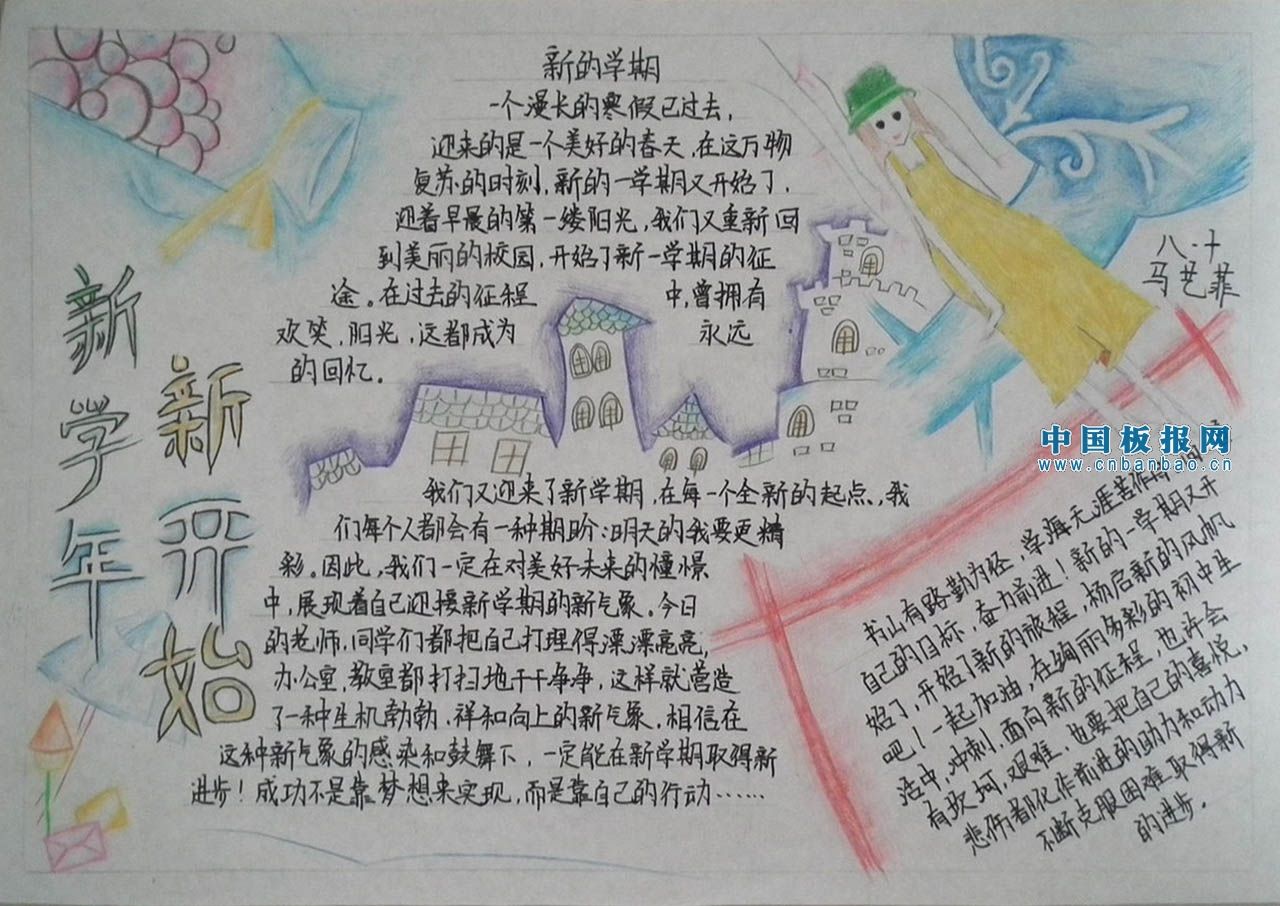 新学年
新开始
新的学期
一个漫长的寒假已过去，
迎来的是一个美好的春天，在这万物
复苏的时刻，新的一学期又开始了，
迎着早晨的第一缕阳光，我们又重新回
到美丽的校园，开始了新一学期的征
途。在过去的征程中，曾拥有
欢笑，阳光，这都成为永远
的回忆。
八·十
马艺菲
我们又迎来了新学期，在每一个全新的起点，我
们每个人都会有一种期盼：明天的我要更精
彩。因此，我们一定在对美好未来的憧憬
中，展现着自己迎接新学期的新气象。今日
的老师，同学们都把自己打理得漂漂亮亮，
办公室，教室都打扫地干干净净，这样就营造
了一种生机勃勃，祥和向上的新气象。相信在
这种新气象的感染和鼓舞下，一定能在新学期取得新
进步！成功不是靠梦想来实现，而是靠自己的行动……
中国板报网
www.cnbanbao.cn
书山有路勤为径，学海无涯苦作舟
自己的目标，奋力前进！新的一学期又开
始了，开始了新的旅程，杨启新的风帆
吧！一起加油，在绚丽多彩的初中生
活中，冲刺，面向新的征程，也许会
有坎坷，艰难，也要把自己的喜悦，
悲伤都化作前进的助力和动力
不断克服困难取得新
的进步。